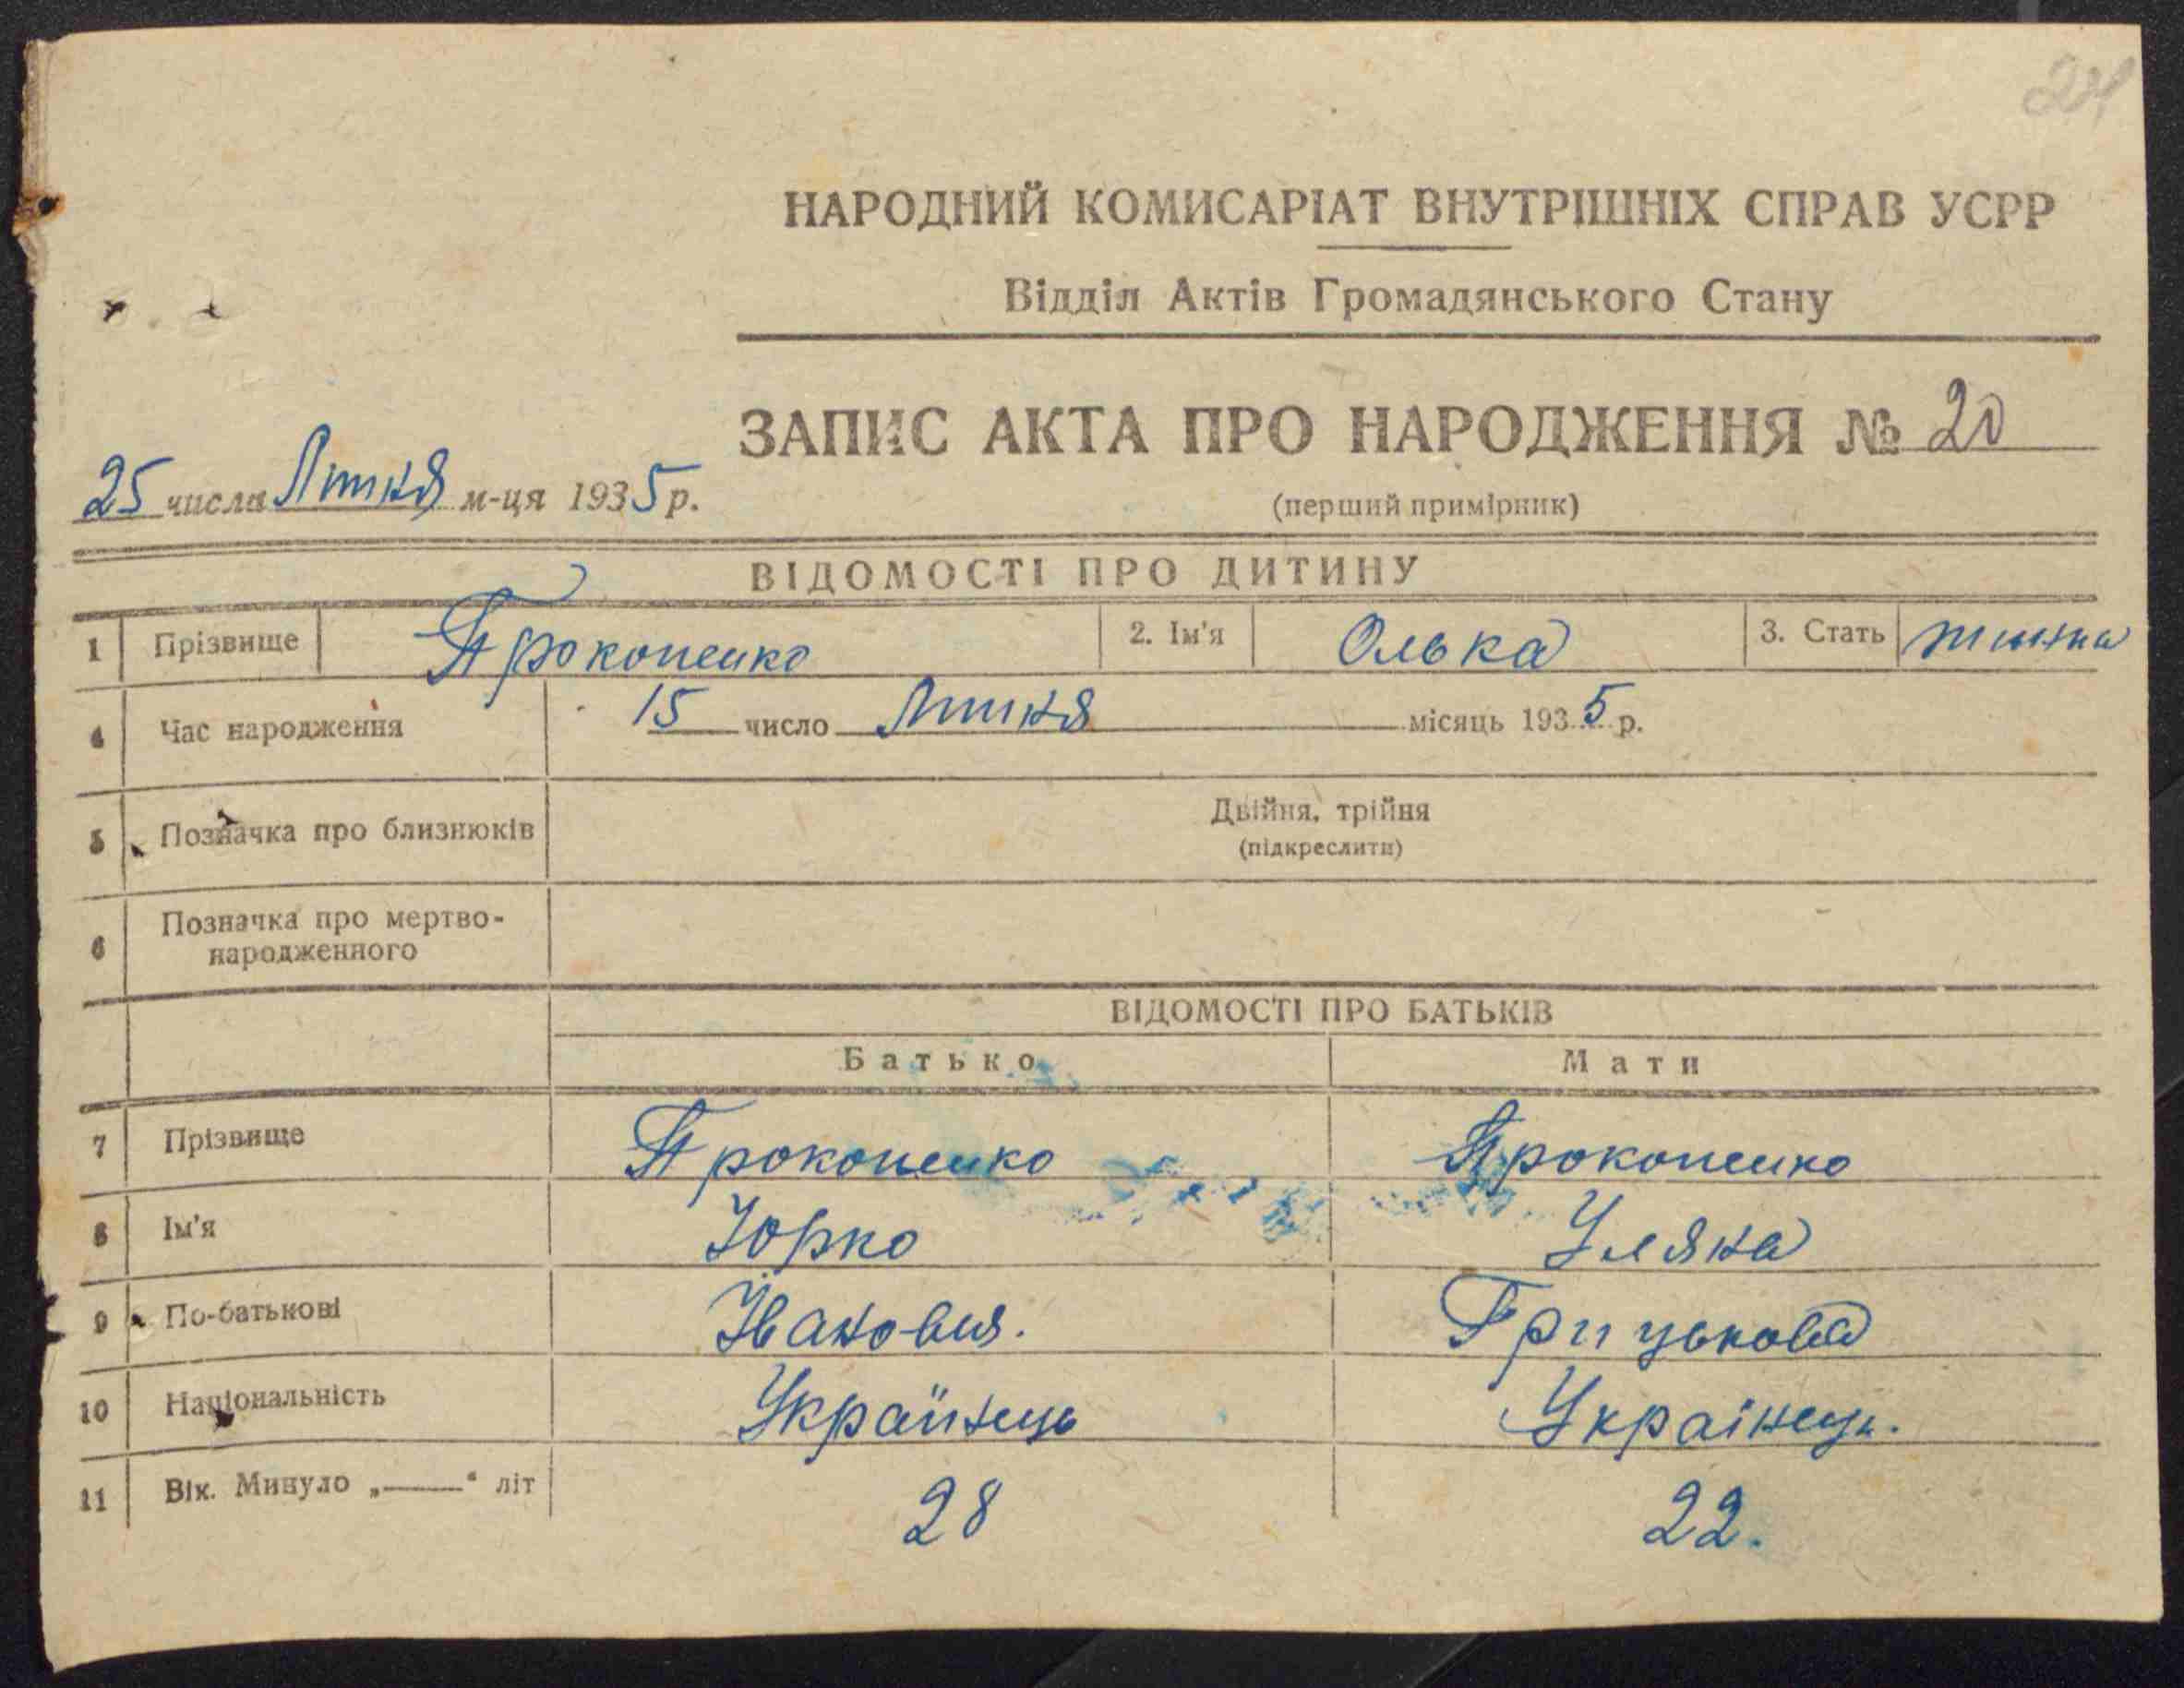 24
НАРОДНИЙ КОМИСАРІАТ ВНУТРІШНІХ СПРАВ УСРР
Відділ Актів Громадянського Стану
ЗАПИС АКТА ПРО НАРОДЖЕННЯ № 20
25 числа Липня м-ця 1935 р.
(перший примірник)
ВІДОМОСТІ ПРО ДИТИНУ
1 Прізвище Прокопенко 2. Ім'я Олька 3. Стать
4 Час народження 15 число Липня місяць 1935 р.
5 Позначка про близнюків Двійня, трійня
(підкреслити)
6 Позначка про мертво-
народженного
ВІДОМОСТІ ПРО БАТЬКІВ
Батько Мати
7 Прізвище Прокопенко Прокопенко
8 Ім'я Юрко Уляна
9 По-батькові Іванович. Грицькова
10 Національність Українець Українець.
11 Вік. Минуло „——“ літ 28 22.